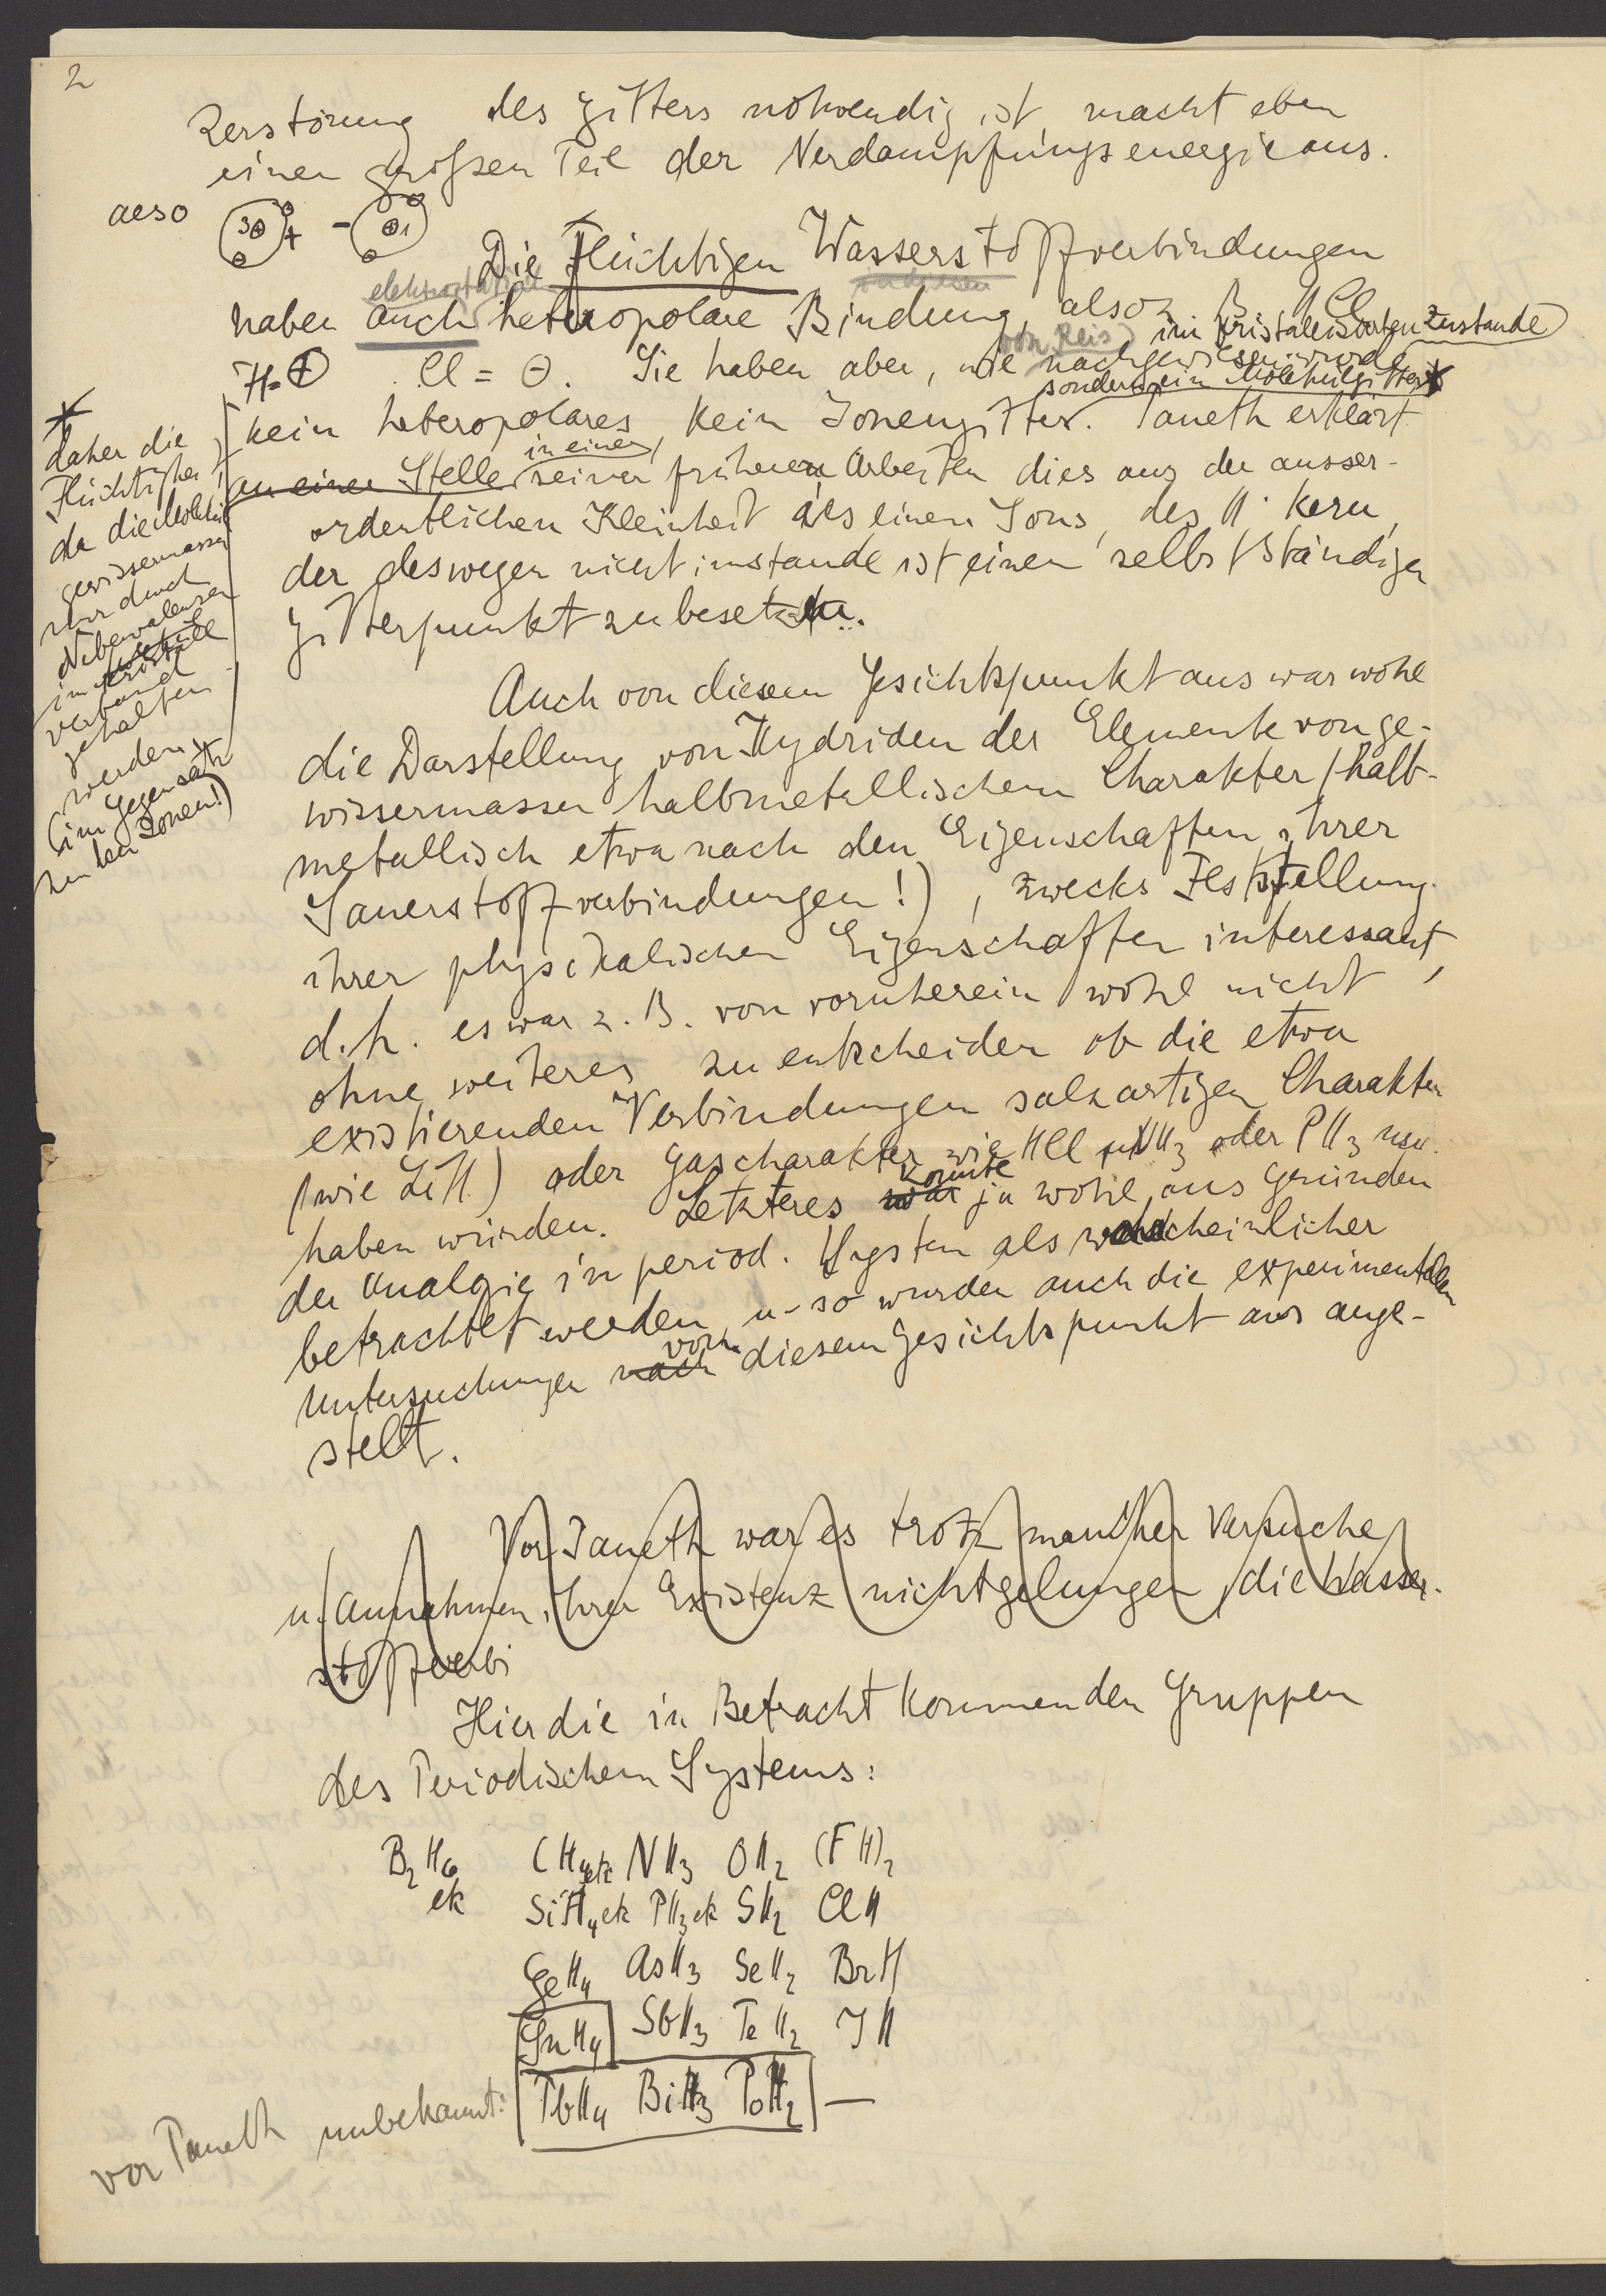 2
Zerstörung des Gitters notwendig ist, macht eben
einen großen Teil der Verdampfungsenergie aus.
also 3⊕ + - ⊕1
Die flüchtigen Wasserstoffverbindungen
elektrostatisch
haben auch heteropolare Bindung, also z. B. HCl
H=⊕ Cl = ⊖. Sie haben aber, wie nachgewiesen wurde
von Reis im kristallisierten Zustande
kein heteropolares, kein Ionengitter. Paneth erklärt
sondern ein Molekülgitter*
an einer Stelle in einer seiner früheren Arbeiten dies aus der ausser-
ordentlichen Kleinheit des einen Ions, des H· Kern,
der deswegen nicht imstande ist einen selbstständigen
Gitterpunkt zu besetzen.
*
daher die
Flüchtigkeit,
da die Moleküle
gewissermassen
nur durch
Nebenvalenzen
im Kristall
verband
gehalten
werden
(im Gegensatz
zu den Ionen!)
Auch von diesem Gesichtspunkt aus war wohl
die Darstellung von Hydriden der Elemente von ge-
wissermassen halbmetallischem Charakter (halb-
metallisch etwa nach den Eigenschaften ihrer
Sauerstoffverbindungen!), zwecks Feststellung
ihrer physikalischen Eigenschaften interessant,
d.h. es war z. B. von vornherein wohl nicht
ohne weiteres zu entscheiden ob die etwa
existierenden Verbindungen salzartigen Charakter
(wie LiH) oder Gascharakter wie HCl NH3 oder PH3 usw.
haben würden. Letzteres war konnte ja wohl aus Gründen
der Analogie in period. System als wahrscheinlicher
betrachtet werden u. so wurden auch die experimentellen
Untersuchungen nach von diesem Gesichtspunkt aus ange-
stellt.
Vor Paneth war es trotz mancher Versuche
u. Annahmen ihrer Existenz nicht gelungen, die Wasser-
stoffverbi
Hier die in Betracht kommenden Gruppen
des Periodischen Systems:
B2H6 etc CH4 etc NH3 OH2 (FH)2
SiH4 etc PH3 etc SH2 ClH
GeH4 AsH3 SeH2 BrH
SnH4 SbH3 TeH2 JH
vor Paneth unbekannt: PbH4 BiH3 PoH2 —